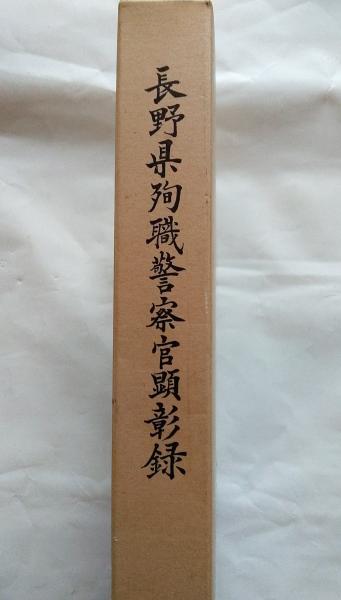 長野県殉職警察官顕彰録